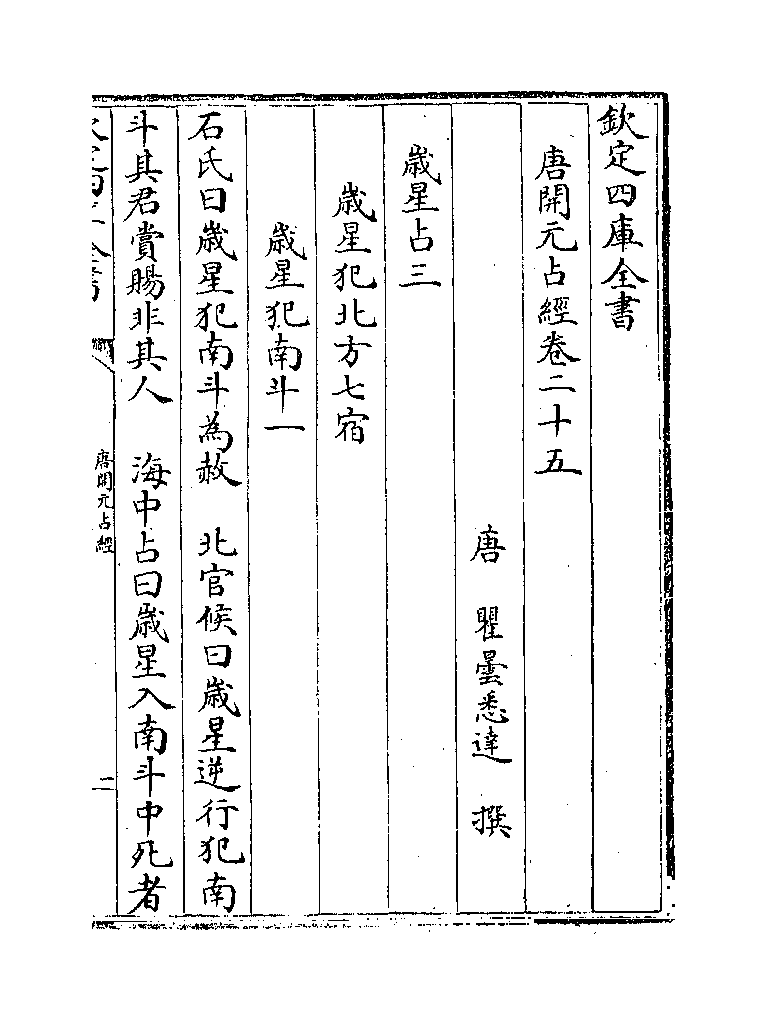 欽定四庫全書
唐開元占經卷二十五
唐 瞿曇悉達 撰
歳星占三
歳星犯北方七宿
歳星犯南斗一
石氏曰歳星犯南斗為赦 北官候曰歳星逆行犯南
斗其君賞賜非其人 海中占曰歳星入南斗中死者
唐開元占經
二